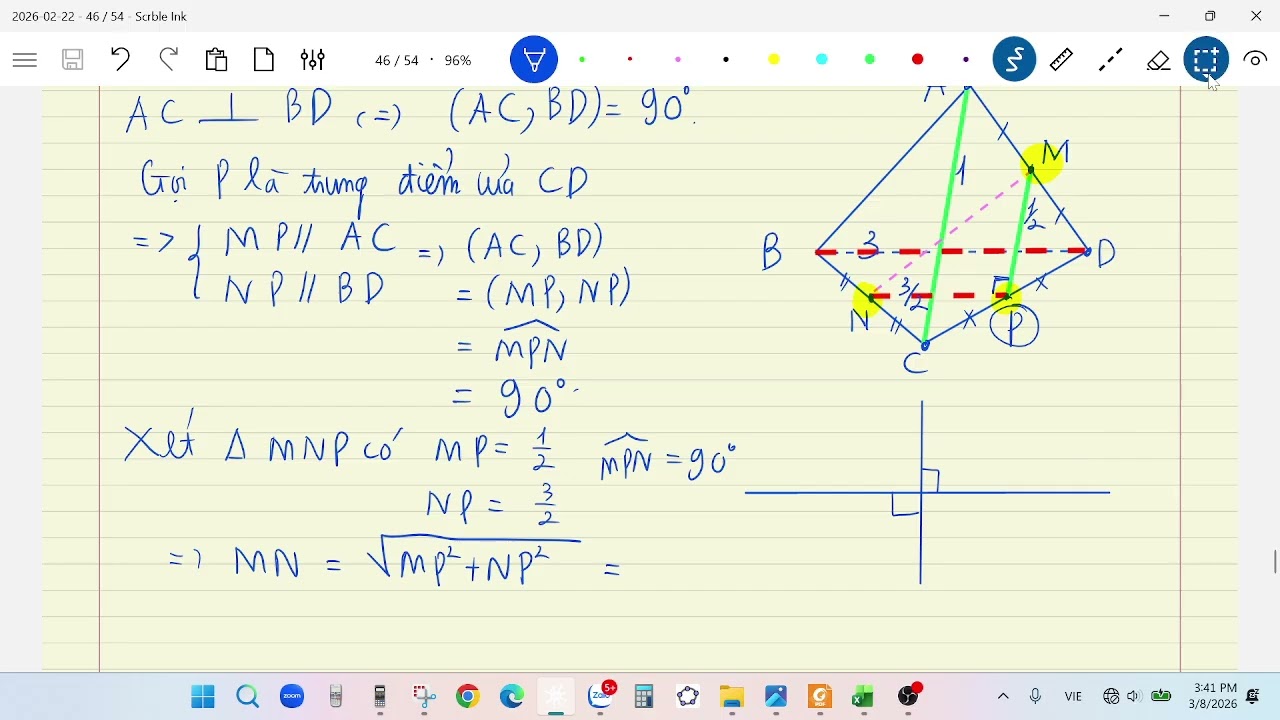 2026-02-22 - 46 / 54 - Scrble Ink
46 / 54 · 96%
AC ⊥ BD (=) (AC, BD) = 90°.
Gọi P là trung điểm của CD
=> { MP // AC => (AC, BD)
NP // BD = (MP, NP)
= MPN
= 90°.
Xét Δ MNP có MP = 1/2 MPN = 90°
NP = 3/2
=> MN = √MP² + NP² =
A
M
1
1/2
B
3
D
3/2
N
P
C
zoom
Zalo
5+
PDF
VIE
3:41 PM
3/8/2026